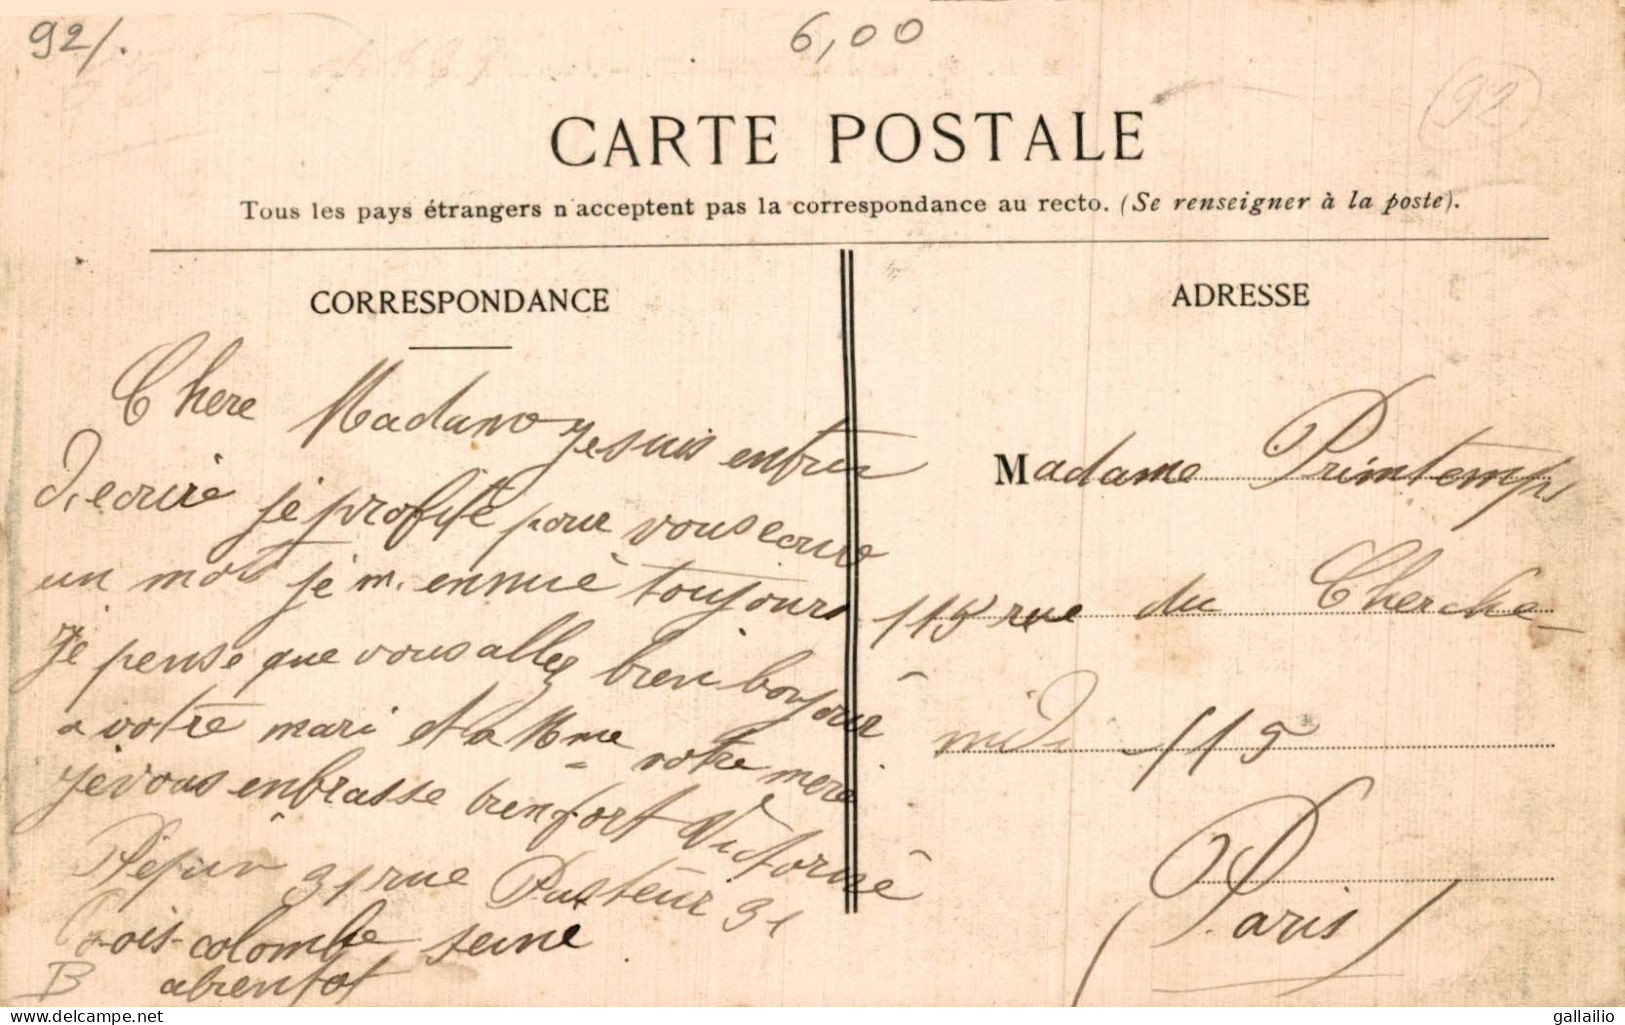 92/.
6,00
(92)
CARTE POSTALE
Tous les pays étrangers n'acceptent pas la correspondance au recto. (Se renseigner à la poste).
CORRESPONDANCE
Chere Madame je suis entrin
d'ecrire je profite pour vous ecrire
un mot je m. ennuie toujours
je pense que vous allez bien bonjour
a votre mari et a Mme votre mere
je vous enbrasse bien fort Victorine
31 rue Pasteur 31
Bois-colombe seine
B abientot
ADRESSE
Madame Printemps
115 rue du Cherche-
midi - 115
(Paris)
www.delcampe.net
gallailio